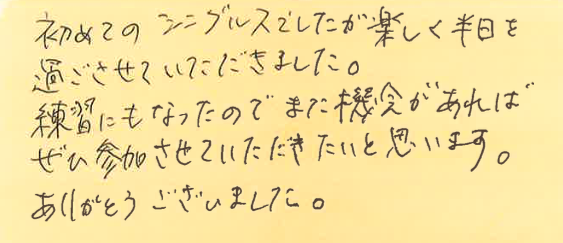 初めてのシングルスでしたが楽しく半日を
過ごさせていただきました。
練習にもなったのでまた機会があれば
ぜひ参加させていただきたいと思います。
ありがとうございました。